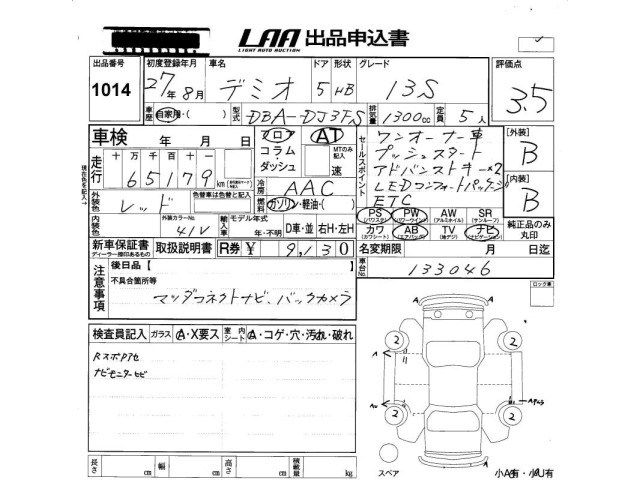 LAA 出品申込書
LIGHT AUTO AUCTION
出品番号 初度登録年月 車名 ドア 形状 グレード 評価点
1014 27年8月 デミオ 5 HB 13S 3.5
車歴 自家用・( ) 型式 DBA-DJ3FS 排気量 1300cc 定員 5人
車検 年 月 日 フロア AT セールスポイント ワンオーナー車 [外装] B
コラム・ダッシュ MTのみ記入 速 プッシュスタート
走行 十万千百十 65179km アドバンストキー×2
冷房 AAC LEDコンフォートパッケージ [内装] B
外装色 レッド 色替車は色替と記入 燃料 ガソリン・軽油・( ) ETC
内装色 外装カラーNo. 41V 輸入車 モデル年式 年・不明 D車・並 右H・左H
PS (パワステ) PW (パワーウインド) AW (アルミホイル) SR (サンルーフ) 純正品のみ丸印
カワ (カワシート) AB (エアバッグ) TV (地デジ) ナビ (ナビゲーション)
新車保証書 ディーラー捺印のあるもの 取扱説明書 R券 ¥ 9,130 名変期限 月 日迄
注意事項 後日品【 車台No. 133046
不具合箇所等
マツダコネクトナビ、バックカメラ
ロック車
検査員記入 ガラス A・X要ス 室内シート A・コゲ・穴・汚れ・破れ
ナビモニターヒビ
2 2
A
2 2
長さ cm 幅 cm 高さ cm 積載量 kg
スペア 小A有・小U有